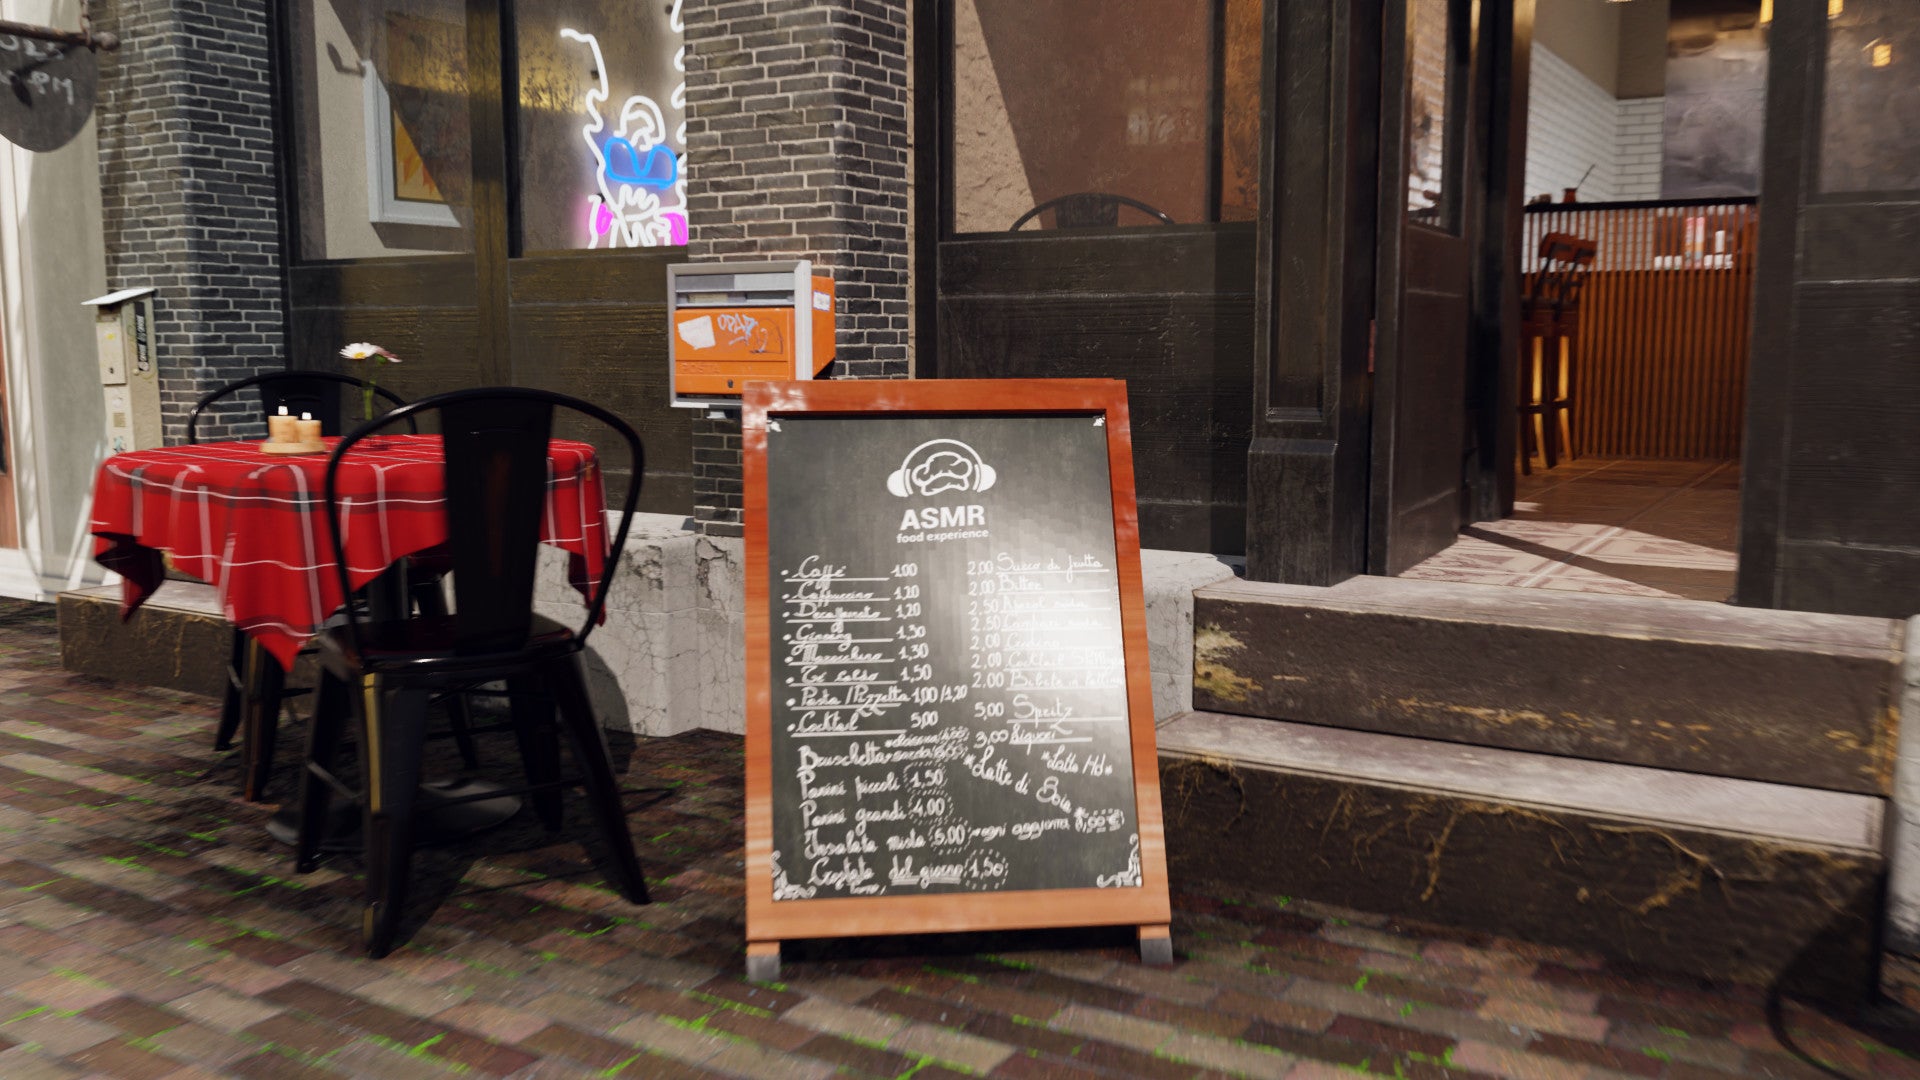 OPAZ
POSTA
ASMR
food experience
Caffè 1,00
Cappuccino 1,20
Decaffeinato 1,20
Ginseng 1,30
Marocchino 1,30
Tè caldo 1,50
Pasta/Pizzetta 1,00/1,20
Cocktail 5,00
2,00 Succo di frutta
2,00 Bitter
2,50 Aperol soda
2,50 Campari soda
2,00 Crodino
2,00 Cocktail
2,00 Bibite in
5,00 Spritz
3,00 Liquori
Bruschetta
Panini piccoli 1,50
Panini grandi 4,00
Insalata mista 6,00 ogni aggiunta 1,00€
Crostata del giorno 1,50
*Latte Hd*
*Latte di Soia*